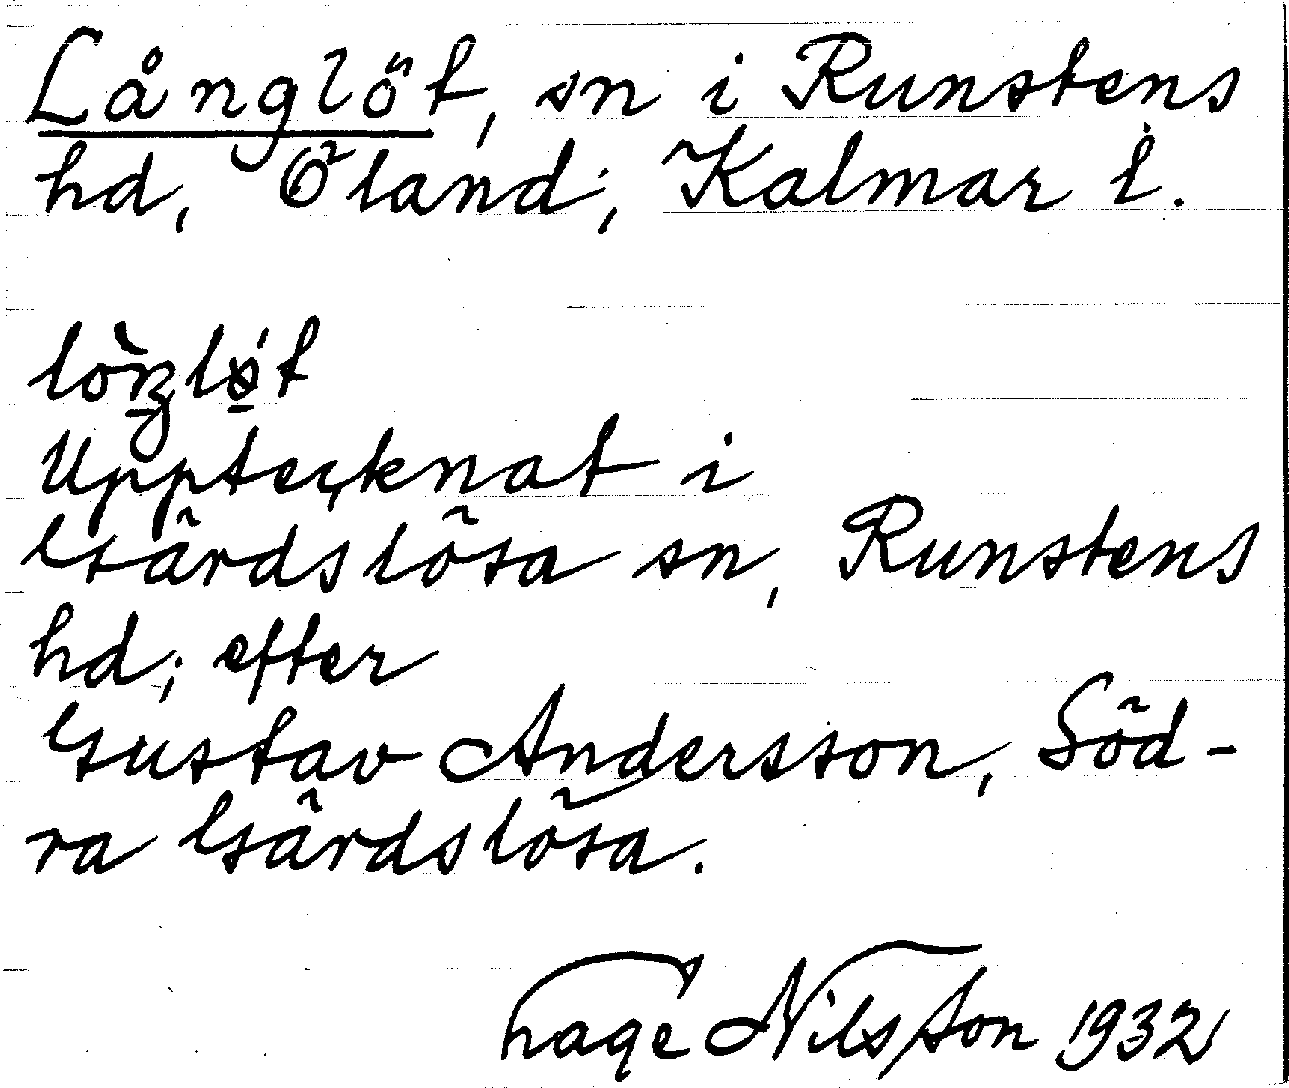 Långlöt, sn i Runstens
hd, Öland; Kalmar l.
Upptecknat i
Gärdslösa sn, Runstens
hd; efter
Gustav Andersson, Söd-
ra Gärdslösa.
Hage Nilsson 1932